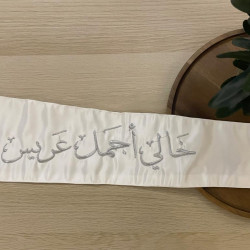 خالي أجمل عريس